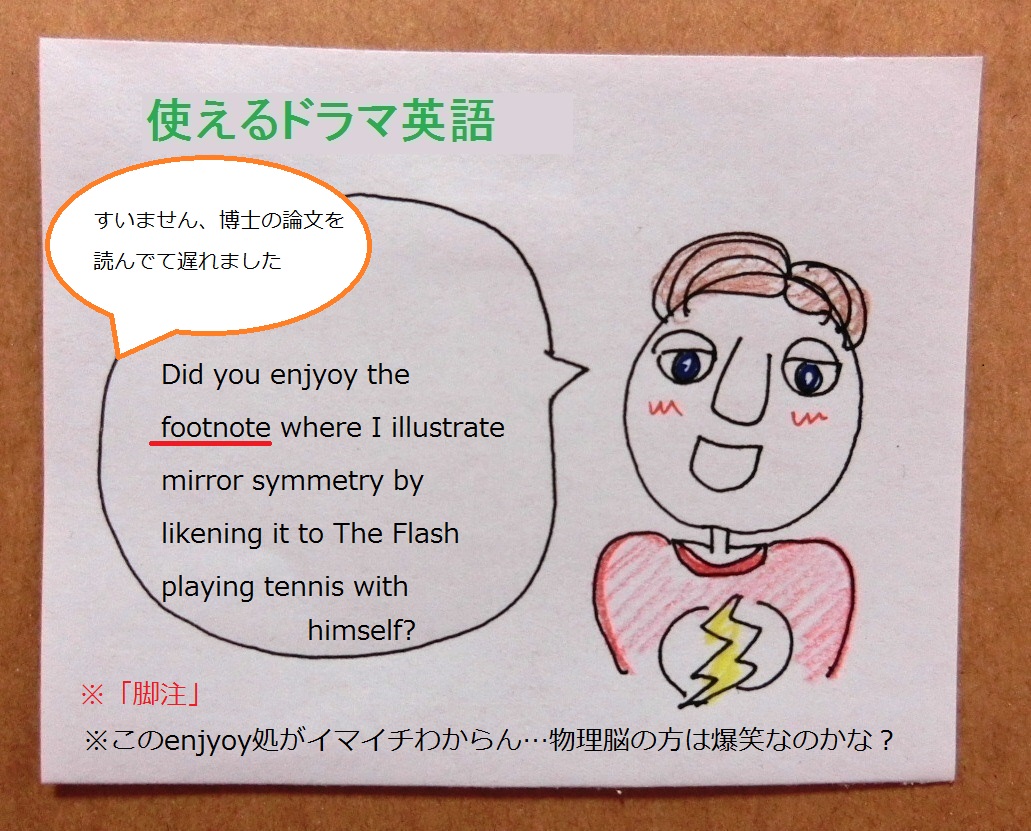 使えるドラマ英語
すいません、博士の論文を
読んでて遅れました
Did you enjyoy the
footnote where I illustrate
mirror symmetry by
likening it to The Flash
playing tennis with
himself?
※「脚注」
※このenjyoy処がイマイチわからん…物理脳の方は爆笑なのかな？